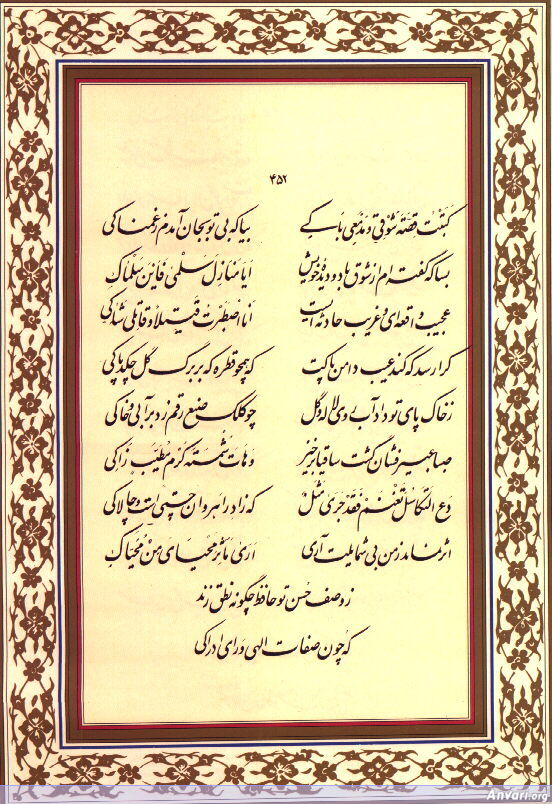 ۴۵۲
کَتَبْتُ قِصَّةَ شَوْقی وَ مَدْمَعی باکی بیا که بی تو بجان آمدم ز غمناکی
بسا که گفته‌ام از شوق با دو دیدهٔ خویش ایا منازل سلمی فاین سلماک
عجیب واقعه‌ای و غریب حادثه ایست انا اصطبرت قتیلا و قاتلی شاکی
کرا رسد که کند عیب دامن پاکت که همچو قطره که بر برگ گل چکد پاکی
ز خاک پای تو داد آب روی لاله و گل چو کلک صنع رقم زد بر آبی و خاکی
صبا عبیر فشان گشت ساقیا برخیز و هات شمسة کرم مطیب زاکی
دع التکاسل تغنم فقد جری مثل که زاد راهروان چستی است و چالاکی
اثر نماند ز من بی شمایلت آری اری مآثر محیای من محیاک
ز وصف حسن تو حافظ چگونه نطق زند
که چون صفات الهی ورای ادراکی
Anvari.org